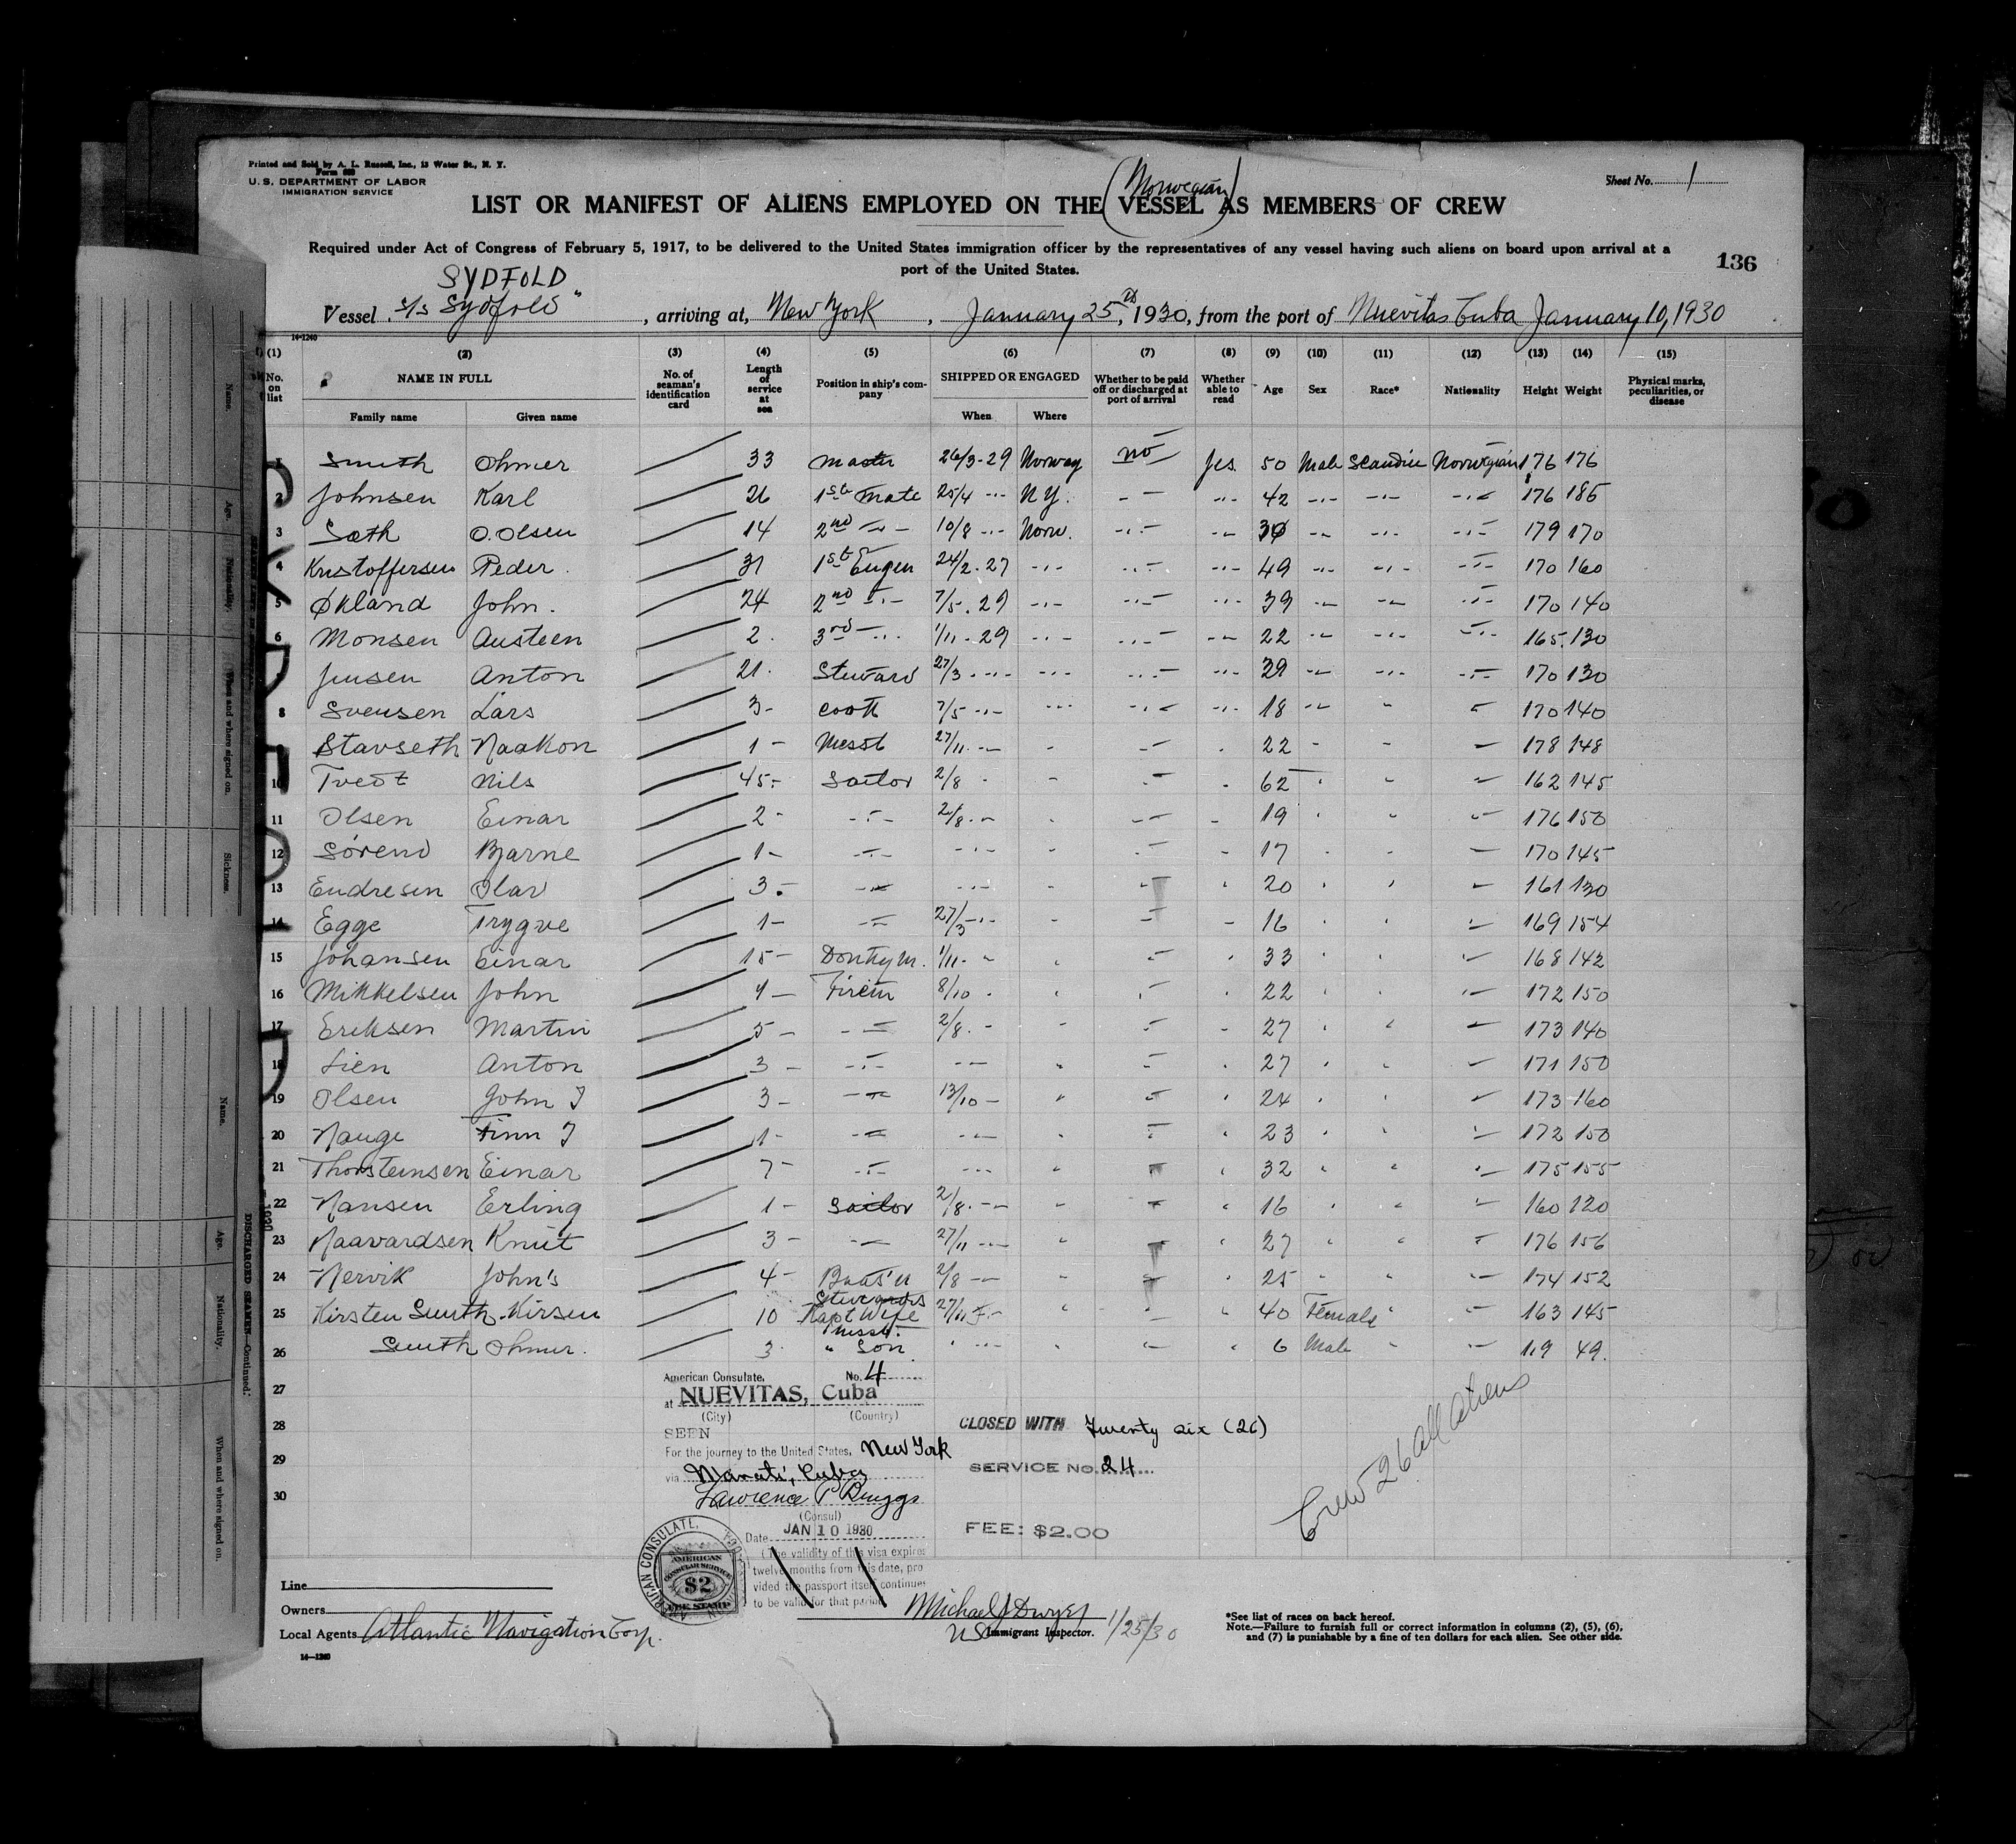 Printed and Sold by A. L. Russell, Inc., 13 Water St., N. Y.
Form 689
U. S. DEPARTMENT OF LABOR
IMMIGRATION SERVICE
Sheet No. 1
(Norwegian)
LIST OR MANIFEST OF ALIENS EMPLOYED ON THE VESSEL AS MEMBERS OF CREW
Required under Act of Congress of February 5, 1917, to be delivered to the United States immigration officer by the representatives of any vessel having such aliens on board upon arrival at a
port of the United States.
136
SYDFOLD
Vessel S/S Sydfold", arriving at, New York, January 25th, 1930, from the port of Nuevitas Cuba January 10, 1930
14-1240
(1) (2) (3) (4) (5) (6) (7) (8) (9) (10) (11) (12) (13) (14) (15)
No. on list NAME IN FULL Family name Given name No. of seaman's identification card Length of service at sea Position in ship's company SHIPPED OR ENGAGED When Where Whether to be paid off or discharged at port of arrival Whether able to read Age Sex Race* Nationality Height Weight Physical marks, peculiarities, or disease
1 Smith Ohmer 33 Master 26/3-29 Norway no Yes 50 Male Scandin Norwegian 176 176
2 Johnsen Karl 26 1st Mate 25/4 -"- N Y. -"- -"- 42 -"- -"- -"- 176 186
3 Sæth O. Olsen 14 2nd -"- 10/8 -"- Norw. -"- -"- 30 -"- -"- -"- 179 170
4 Kristoffersen Peder. 31 1st Engen 24/2-27 -"- -"- -"- 49 -"- -"- -"- 170 160
5 Økland John. 24 2nd -"- 7/5.29 -"- -"- -"- 39 -"- -"- -"- 170 140
6 Monsen Austeen 2. 3rd -"- 1/11-29 -"- -"- -"- 22 -"- -"- -"- 165. 130
7 Jensen Anton 21. Steward 27/3 -"- -"- -"- -"- 39 -"- -"- -"- 170 130
8 Svensen Lars 3- Cook 7/5 -"- -"- -"- -"- 18 -"- " -"- 170 140
9 Stavseth Haakon 1- Messt 27/11 -"- " -"- " 22 " " -"- 178 148
10 Tvedt Nils 45- Sailor 2/8 " " -"- " 62 " " " 162 145
11 Olsen Einar 2- -"- 2/8 -"- " -"- " 19 " " -"- 176 150
12 Sørend Bjarne 1- -"- -"- " -"- " 17 " " " 170 145
13 Endresen Olav 3- -"- -"- " -"- " 20 " " " 161 130
14 Egge Trygve 1- -"- 27/3 -"- " -"- " 16 " " " 169 154
15 Johansen Einar 15- Donkym. 1/11 " " -"- " 33 " " -"- 168 142
16 Mikkelsen John 4- Firem 8/10 " " -"- " 22 " " -"- 172 150
17 Eriksen Martin 5- -"- 2/8 " " -"- " 27 " " " 173 140
18 Lien Anton 3- -"- -"- " -"- " 27 " " " 171 150
19 Olsen John J 3- -"- 13/10 - " -"- " 24 " " " 173 160
20 Hauge Finn J 1- -"- -"- " -"- " 23 " " " 172 150
21 Thorsteinsen Einar 7- -"- -"- " " " 32 " " -"- 175 155
22 Hansen Erling 1- Sailor 2/8 -"- " " " 16 " " -"- 160 120
23 Haavardsen Knut 3- -"- 27/11 -"- " " " 27 " " " 176 156
24 Nervik John's 4- Boats'n 2/8 -"- " " " 25 " " -"- 174 152
25 Kirsten Smith-Kirsen 10 Stewardess Kapt Wife 27/11 " " " " 40 Female " -"- 163 145
26 Smith Ohmer. 3. Messb. " Son " -"- " " " 6 Male " -"- 1.19 49.
27
28
29
30
American Consulate, No. 4
at NUEVITAS, Cuba
(City) (Country)
SEEN
For the journey to the United States, New York
via Manati, Cuba
Lawrence P Briggs
(Consul)
Date JAN 10 1930
(The validity of this visa expires
twelve months from this date, pro
vided the passport itself continues
to be valid for that period
CLOSED WITH Twenty six (26)
SERVICE No. 24
FEE: $2.00
Crew 26 all aliens
AMERICAN CONSULATE
AMERICAN
CONSULAR SERVICE
$2
FEE STAMP
Line
Owners
Local Agents Atlantic Navigation Corp.
14-1240
Michael J Dwyer
US Immigrant Inspector. 1/25/30
*See list of races on back hereof.
Note.—Failure to furnish full or correct information in columns (2), (5), (6),
and (7) is punishable by a fine of ten dollars for each alien. See other side.
Name.
Age.
Nationality.
When and where signed on.
Sickness.
Name.
Age.
Nationality.
When and where signed on.
DISCHARGED SEAMEN—Continued.